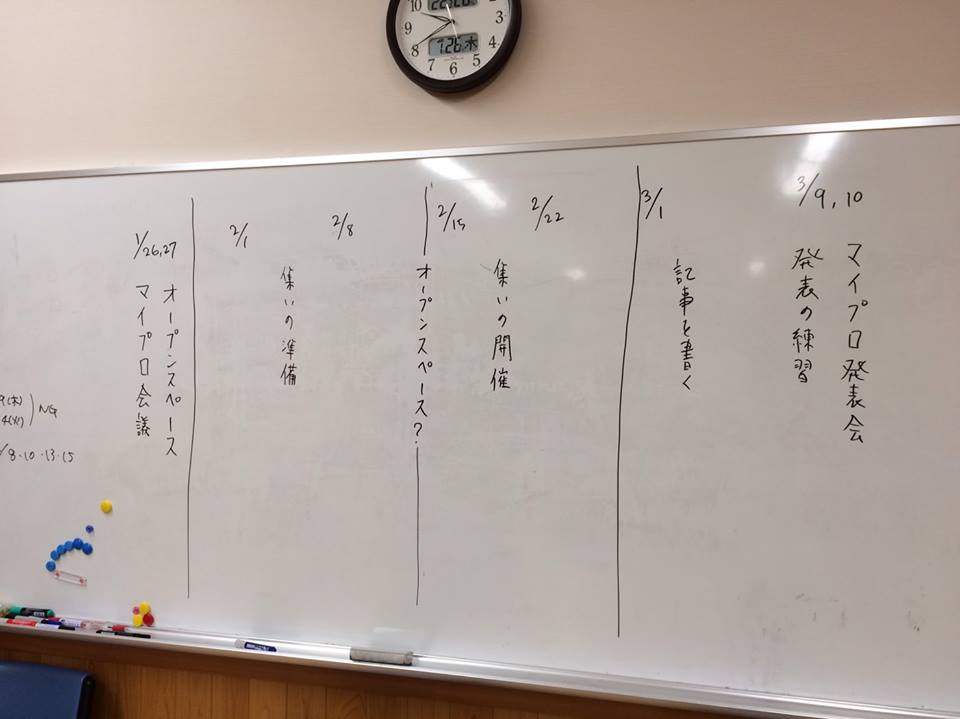 10
9
8
7
6
5
4
3
2
1.26 木
1/26,27
オープンスペース
マイプロ会議
2/1
2/8
集いの準備
2/15
オープンスペース?
2/22
集いの開催
3/1
記事を書く
3/9, 10
マイプロ発表会
発表の練習
NG
8・10・13・15